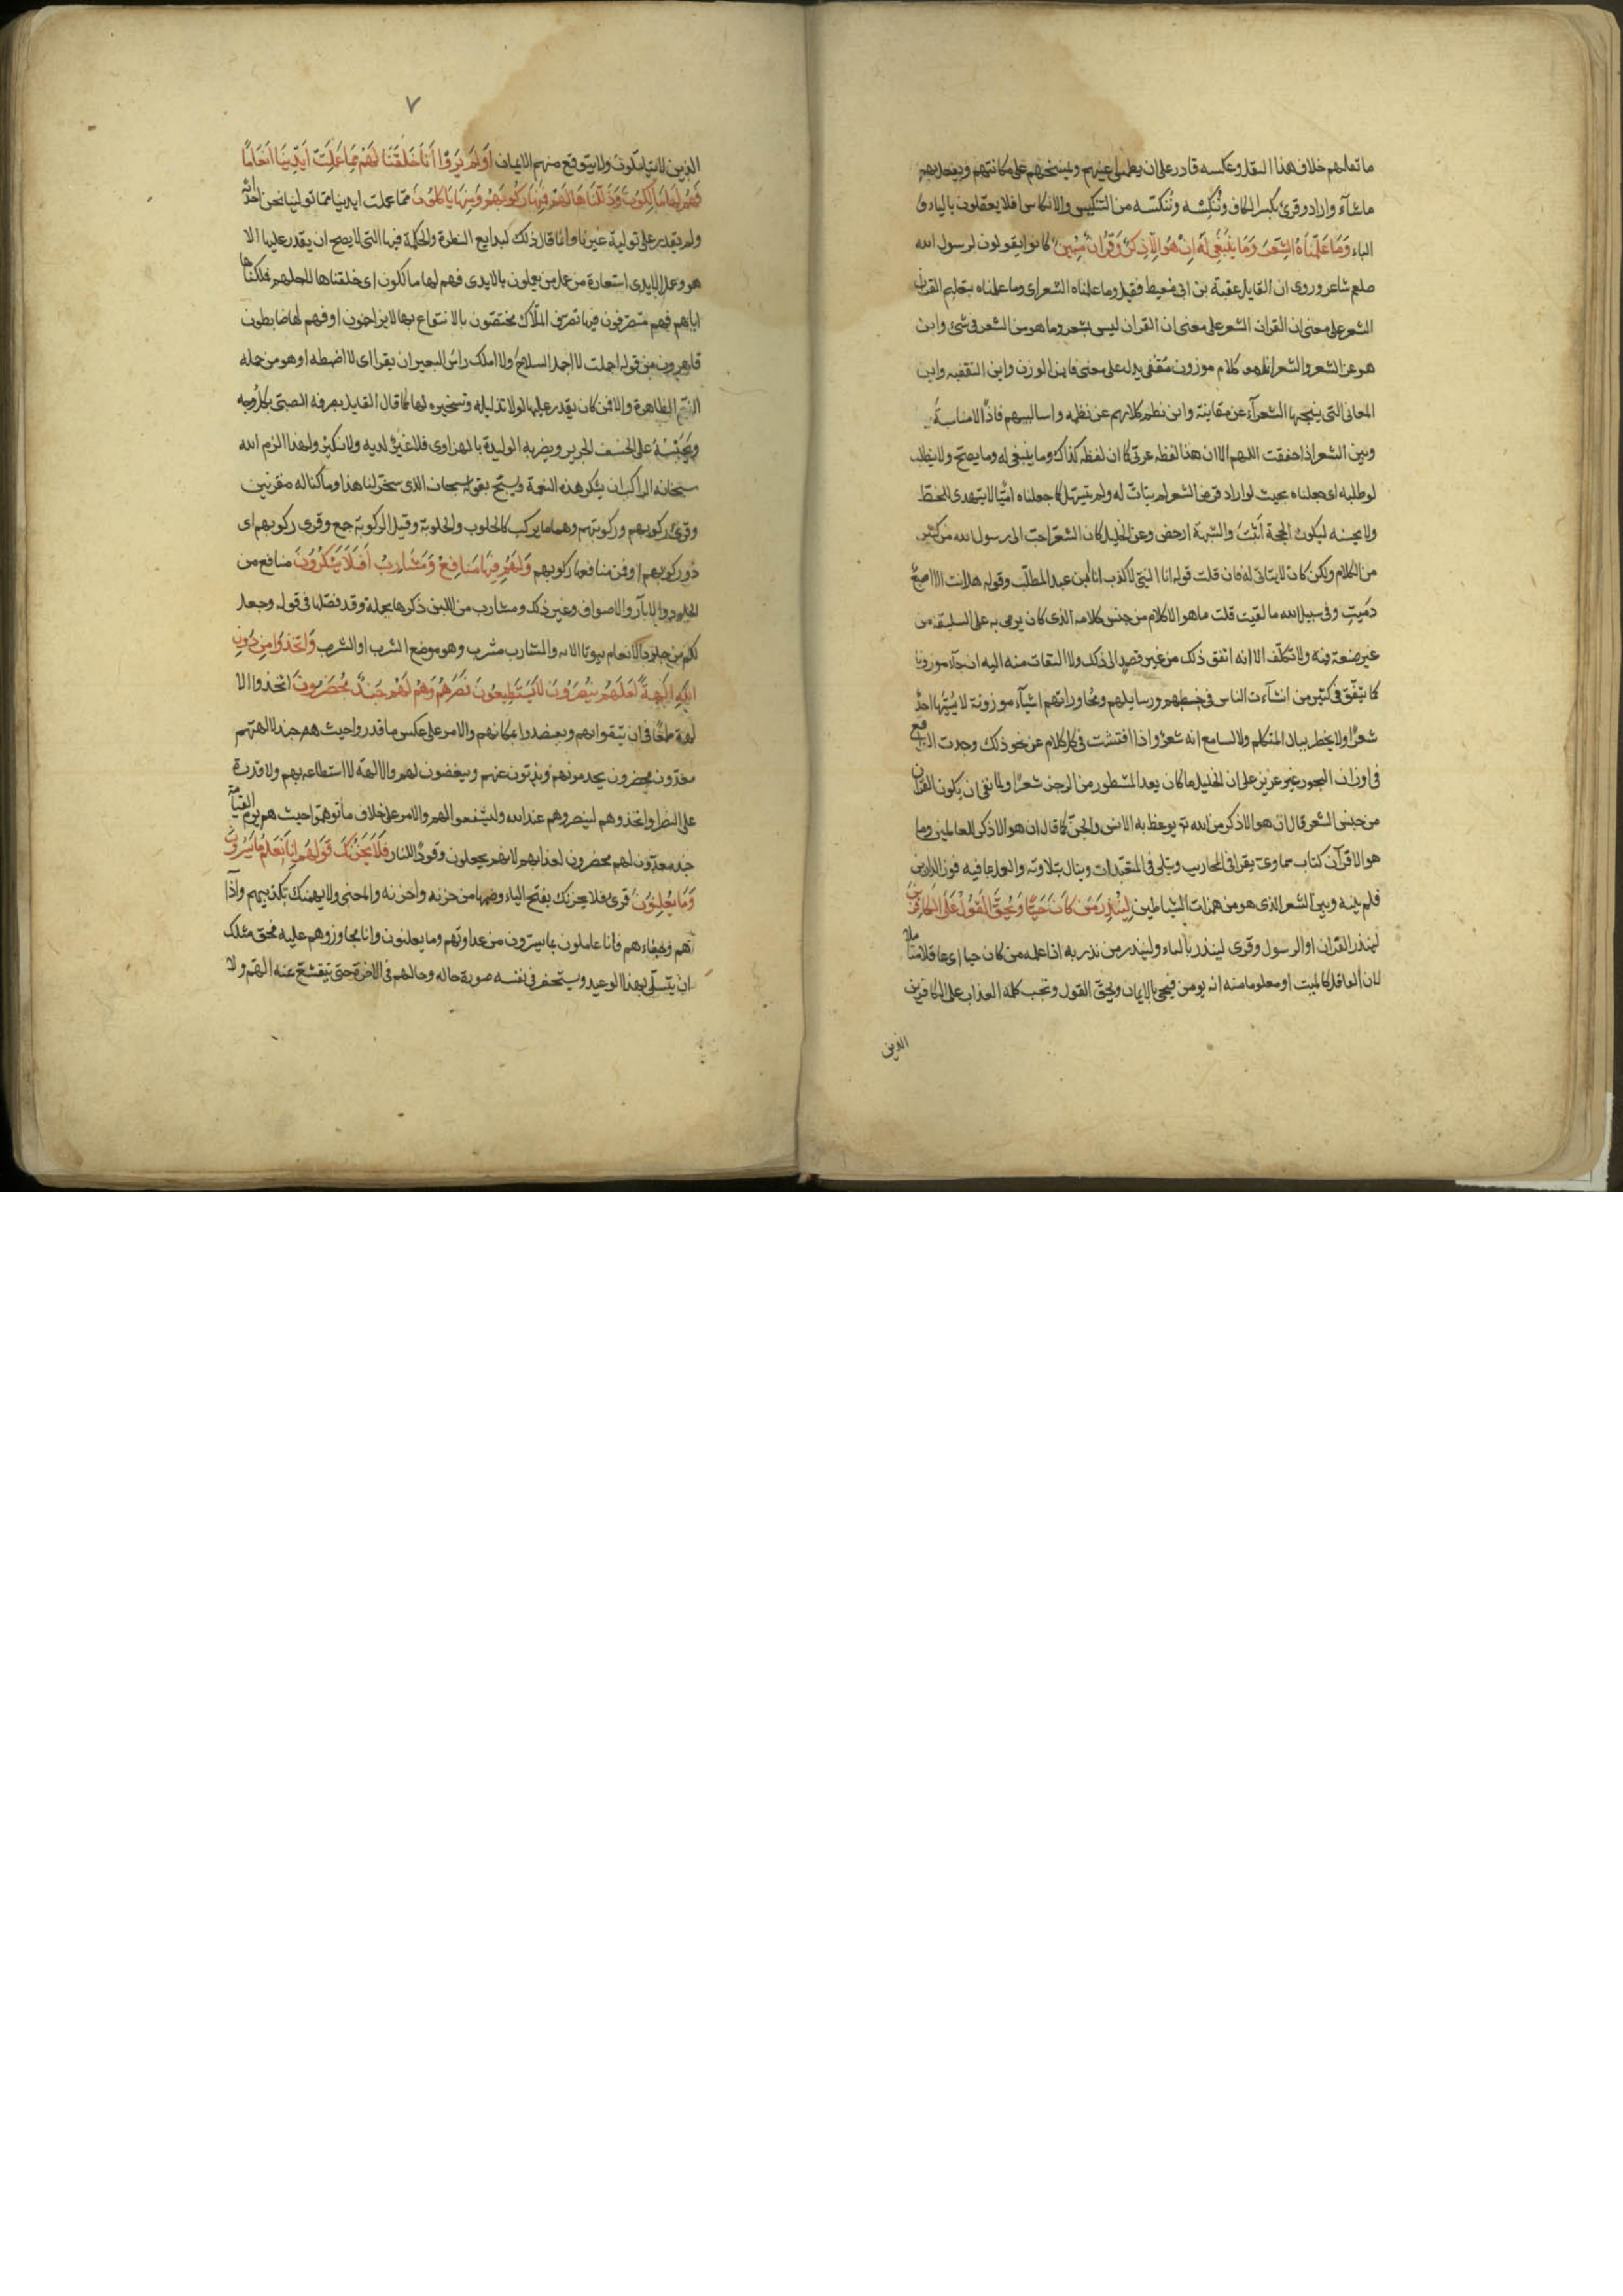 ما نعلهم خلاف هذا النقل وعكسه قادر على ان يطمس على اعينهم ويمسخهم على مكانتهم ويفعل بهم
ما شآء واراد وقرئ بكسر الكاف وننكسه وننكسه من التنكيس والانكاس افلا يعقلون بالياء و
التاء وَمَا عَلَّمْنَاهُ الشِّعْرَ وَمَا يَنْبَغِي لَهُ اِنْ هُوَ اِلَّا ذِكْرٌ وَقُرْانٌ مُبِينٌ كانوا يقولون لرسول الله
صلعم شاعر وروى ان القايل عقبة بن ابى معيط فقيل وما علمناه الشعر اى وما علمناه بتعليم القران
الشعر على معنى ان القران الشعر على معنى ان القران ليس بشعر وما هو من الشعر فى شئ واين
هو عن الشعر والشعر انما هو كلام موزون مقفى يدل على معنى فاين الوزن واين التقفيه واين
المعانى التى ينتجها الشعرآء عن معانيه واين نظم كلامهم عن نظمه واساليبهم فاذًا لا مناسبة بينه
وبين الشعر اذا حققت اللهم الا ان هذا لفظه عربى كما ان لفظه كذاك وما ينبغى له وما يصح ولا يتطلب
لو طلبه اى جعلناه بحيث لو اراد قرض الشعر لم يتأت له ولم يتسهل كما جعلناه اميًّا لا يتهدى للخط
ولا يحسنه ليكون الحجة اثبت والشبهة ادحض وعن الخليل كان الشعر احب الى رسول الله من كثير
من الكلام ولكن كان لا يتاتى له فان قلت قوله انا النبى لا كذب انا ابن عبد المطلب وقوله هل انت الا اصبع
دميت وفى سبيل الله ما لقيت قلت ما هو الا كلام من جنس كلامه الذى كان يرمى به على السليقة من
غير صنعة فيه ولا تكلف الا انه اتفق ذلك من غير قصد الى ذلك ولا التفات منه اليه ان جآء موزونا
كما يتفق فى كثير من انشآءت الناس فى خطبهم ورسايلهم ومحاوراتهم اشيآء موزونة لا يسميها احد
شعرًا ولا يخطر ببال المتكلم ولا السامع انه شعر واذا فتشت فى كل كلام عن نحو ذلك وجدت الواقع
فى اوزان البحور غير عزيز على ان الخليل ما كان يعد المشطور من الرجز شعرًا ولما نفى ان يكون القران
من جنس الشعر قال ان هو الا ذكر من الله تع يوعظ به الانس والجن كما قال ان هو الا ذكر للعالمين وما
هو الا قرآن كتاب سماوى يقرا فى المحاريب ويتلى فى المتعبدات وينال بتلاوته والعمل بما فيه فوز الدارين
فكم بينه وبين الشعر الذى هو من همزات الشياطين لِيُنْذِرَ مَنْ كَانَ حَيًّا وَيَحِقَّ الْقَوْلُ عَلَى الْكَافِرِينَ
لينذر القران او الرسول وقرى لتنذر بالتاء ولينذر من نذر به اذا علمه من كان حيا اى عاقلا متأملا
لان الغافل كالميت او معلوما منه انه يومن فيحيى بالايمان ويحق القول وتجب كلمه العذاب على الكافرين
الذين
٧
الذين لا يتاملون ولا يتوقع منهم الايمان اَوَلَمْ يَرَوْا اَنَّا خَلَقْنَا لَهُمْ مِمَّا عَمِلَتْ اَيْدِينَا اَنْعَامًا
فَهُمْ لَهَا مَالِكُونَ وَذَلَّلْنَاهَا لَهُمْ فَمِنْهَا رَكُوبُهُمْ وَمِنْهَا يَاْكُلُونَ مما عملت ايدينا مما تولينا نحن احداثه
ولم يقدر على توليه غيرنا وانما قال ذلك لبدايع الفطرة والحكمة فيها التى لا يصح ان يقدر عليها الا
هو وعمل الايدى استعارة من عمل من يعملون بالايدى فهم لها مالكون اى خلقناها لاجلهم فملكناها
اياهم فهم متصرفون فيها تصرف الملاك مختصون بالانتفاع بها لا يزاحمون او فهم لها ضابطون
قاهرون من قوله اصبحت لا احمل السلاح ولا املك راس البعير ان نفرا اى لا اضبطه او هو من جمله
النعم الظاهرة والا فمن كان يقدر عليها لولا تذليله وتسخيره لها كما قال القايل يصرفه الصبى بكل وجه
ويحبسه على الخسف الجرير ويضربه الوليدة بالهراوى فلا غير لديه ولا نكير ولهذا الزم الله
سبحانه الراكب ان يشكر هذه النعمة ويسبح بقوله سبحان الذى سخر لنا هذا وما كنا له مقرنين
وقرئ ركوبهم وركوبتهم وهما ما يركب كالحلوب والحلوبة وقيل الركوبة جمع وقرى ركوبهم اى
ذو ركوبهم او فمن منافعها ركوبهم وَلَهُمْ فِيهَا مَنَافِعُ وَمَشَارِبُ اَفَلَا يَشْكُرُونَ منافع من
الجلود والاوبار والاصواف وغير ذلك ومشارب من اللبن ذكرها مجملة وقد فصلها فى قوله وجعل
لكم من جلود الانعام بيوتا الايه والمشارب جمع مشرب وهو موضع الشرب او الشرب وَاتَّخَذُوا مِنْ دُونِ
اللّٰهِ اٰلِهَةً لَعَلَّهُمْ يُنْصَرُونَ لَا يَسْتَطِيعُونَ نَصْرَهُمْ وَهُمْ لَهُمْ جُنْدٌ مُحْضَرُونَ اتخذوا الا
لهة طمعًا فى ان يتقووا بهم ويعتضدوا بمكانهم والامر على عكس ما قدروا حيث هم جند لالهتهم
معدون محضرون يخدمونهم ويذبون عنهم ويغضبون لهم والالهة لا استطاعه بهم ولا قدرة
على النصر او اتخذوهم لينصروهم عند الله وليشفعوا لهم والامر على خلاف ما توهموا حيث هم يوم القيامة
جند معدون لهم محضرون لعذابهم لانهم يجعلون وقودًا للنار فَلَا يَحْزُنْكَ قَوْلُهُمْ اِنَّا نَعْلَمُ مَا يُسِرُّونَ
وَمَا يُعْلِنُونَ قرئ فلا يحزنك بفتح الياء وضمها من حزنه واحزنه والمعنى ولا يهمنك تكذيبهم واذا
هم وجفاءهم فانا عاملون بما يسرون من عداوتهم وما يعلنون وانا مجازوهم عليه فحق مثلك
ان يتسلى بهذا الوعيد ويستحضر فى نفسه صورة حاله وحالهم فى الاخرة حتى ينقشع عنه الهم ولا